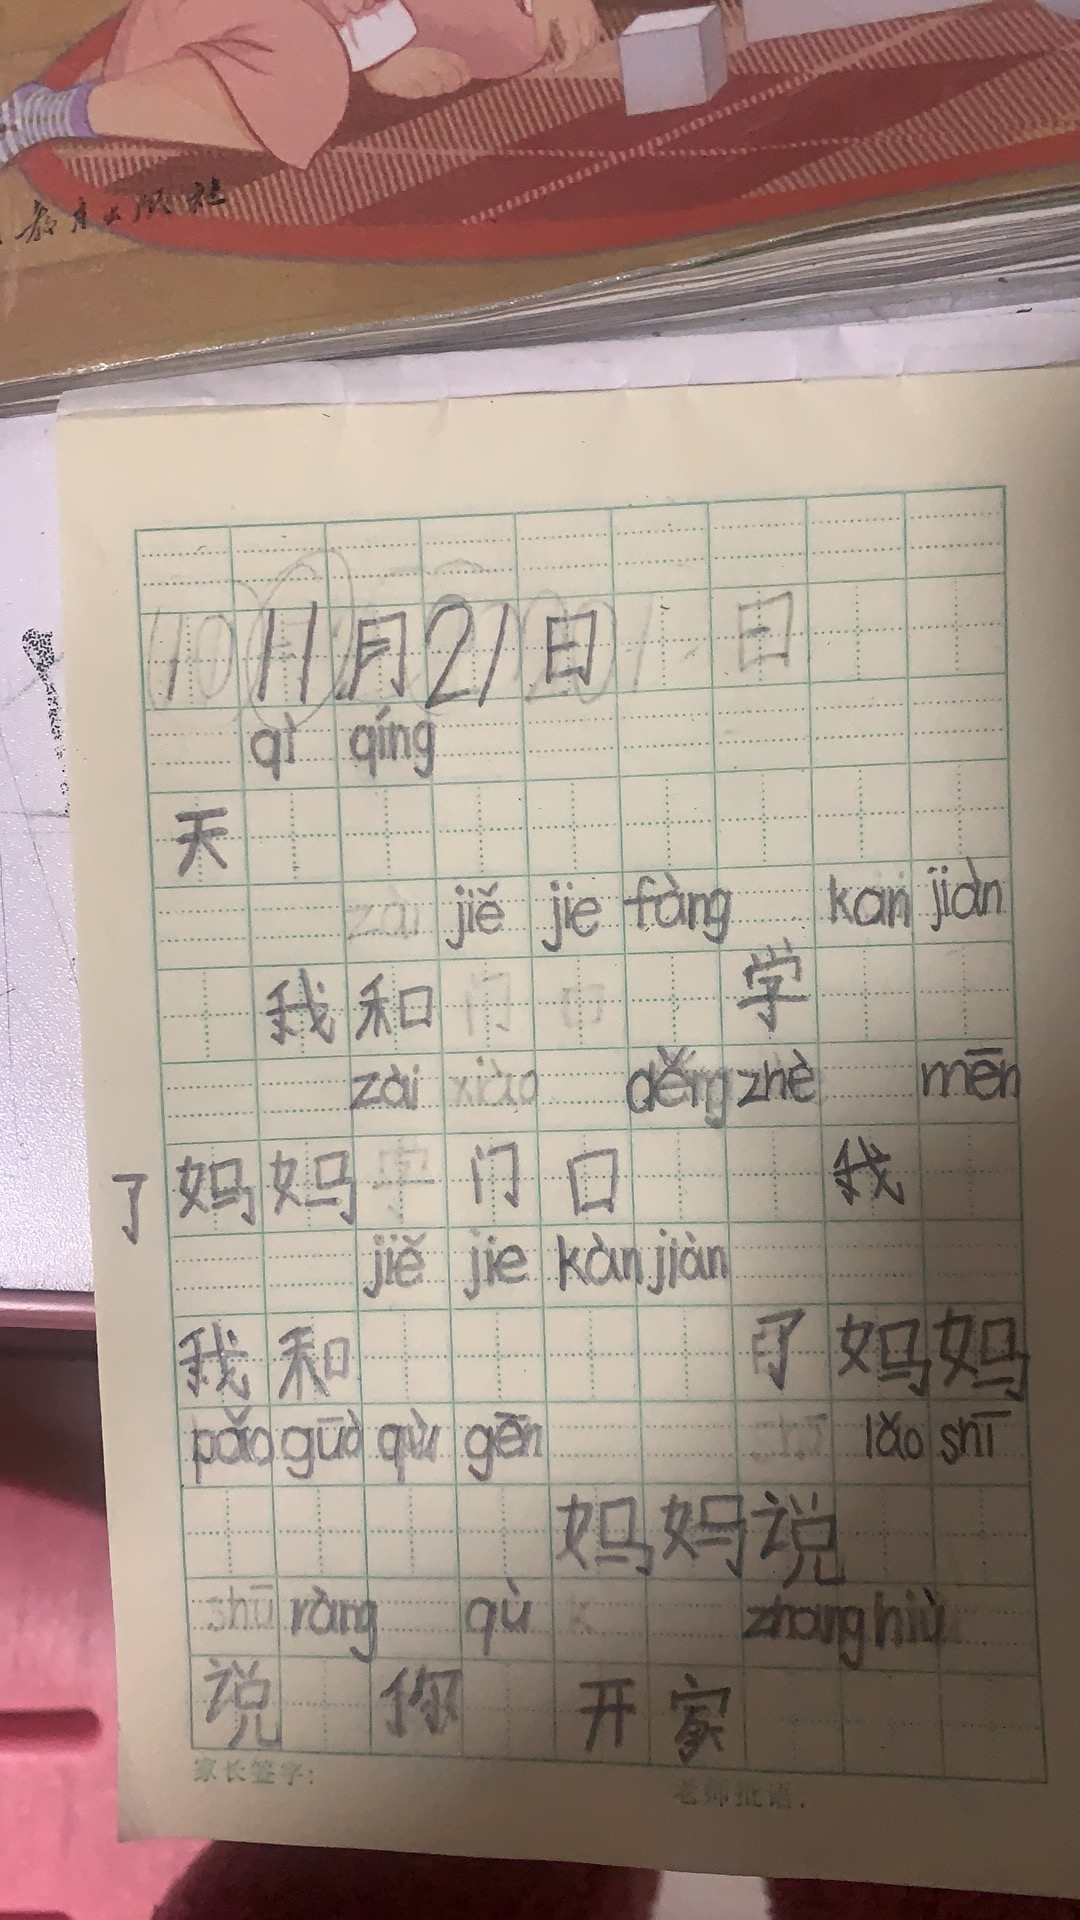 教育出版社
11月21日
qì qíng
天
jiě jie fàng kàn jiàn
我和 学
zài děng zhè mēn
了妈妈 门口 我
jiě jie kàn jiàn
我和 了妈妈
pǎo guò qù gēn lǎo shī
妈妈说
shū ràng qù zhang hiù
说 你 开家
家长签字：
老师批语：